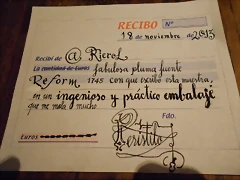 RECIBO Nº
18 de noviembre de 2015
Recibí de @ Rierol
La cantidad de Euros fabulosa pluma fuente
Reform 1745 con que escribo esta muestra,
en un ingenioso y práctico embalaje
que me mola mucho.
Fdo.
Euros